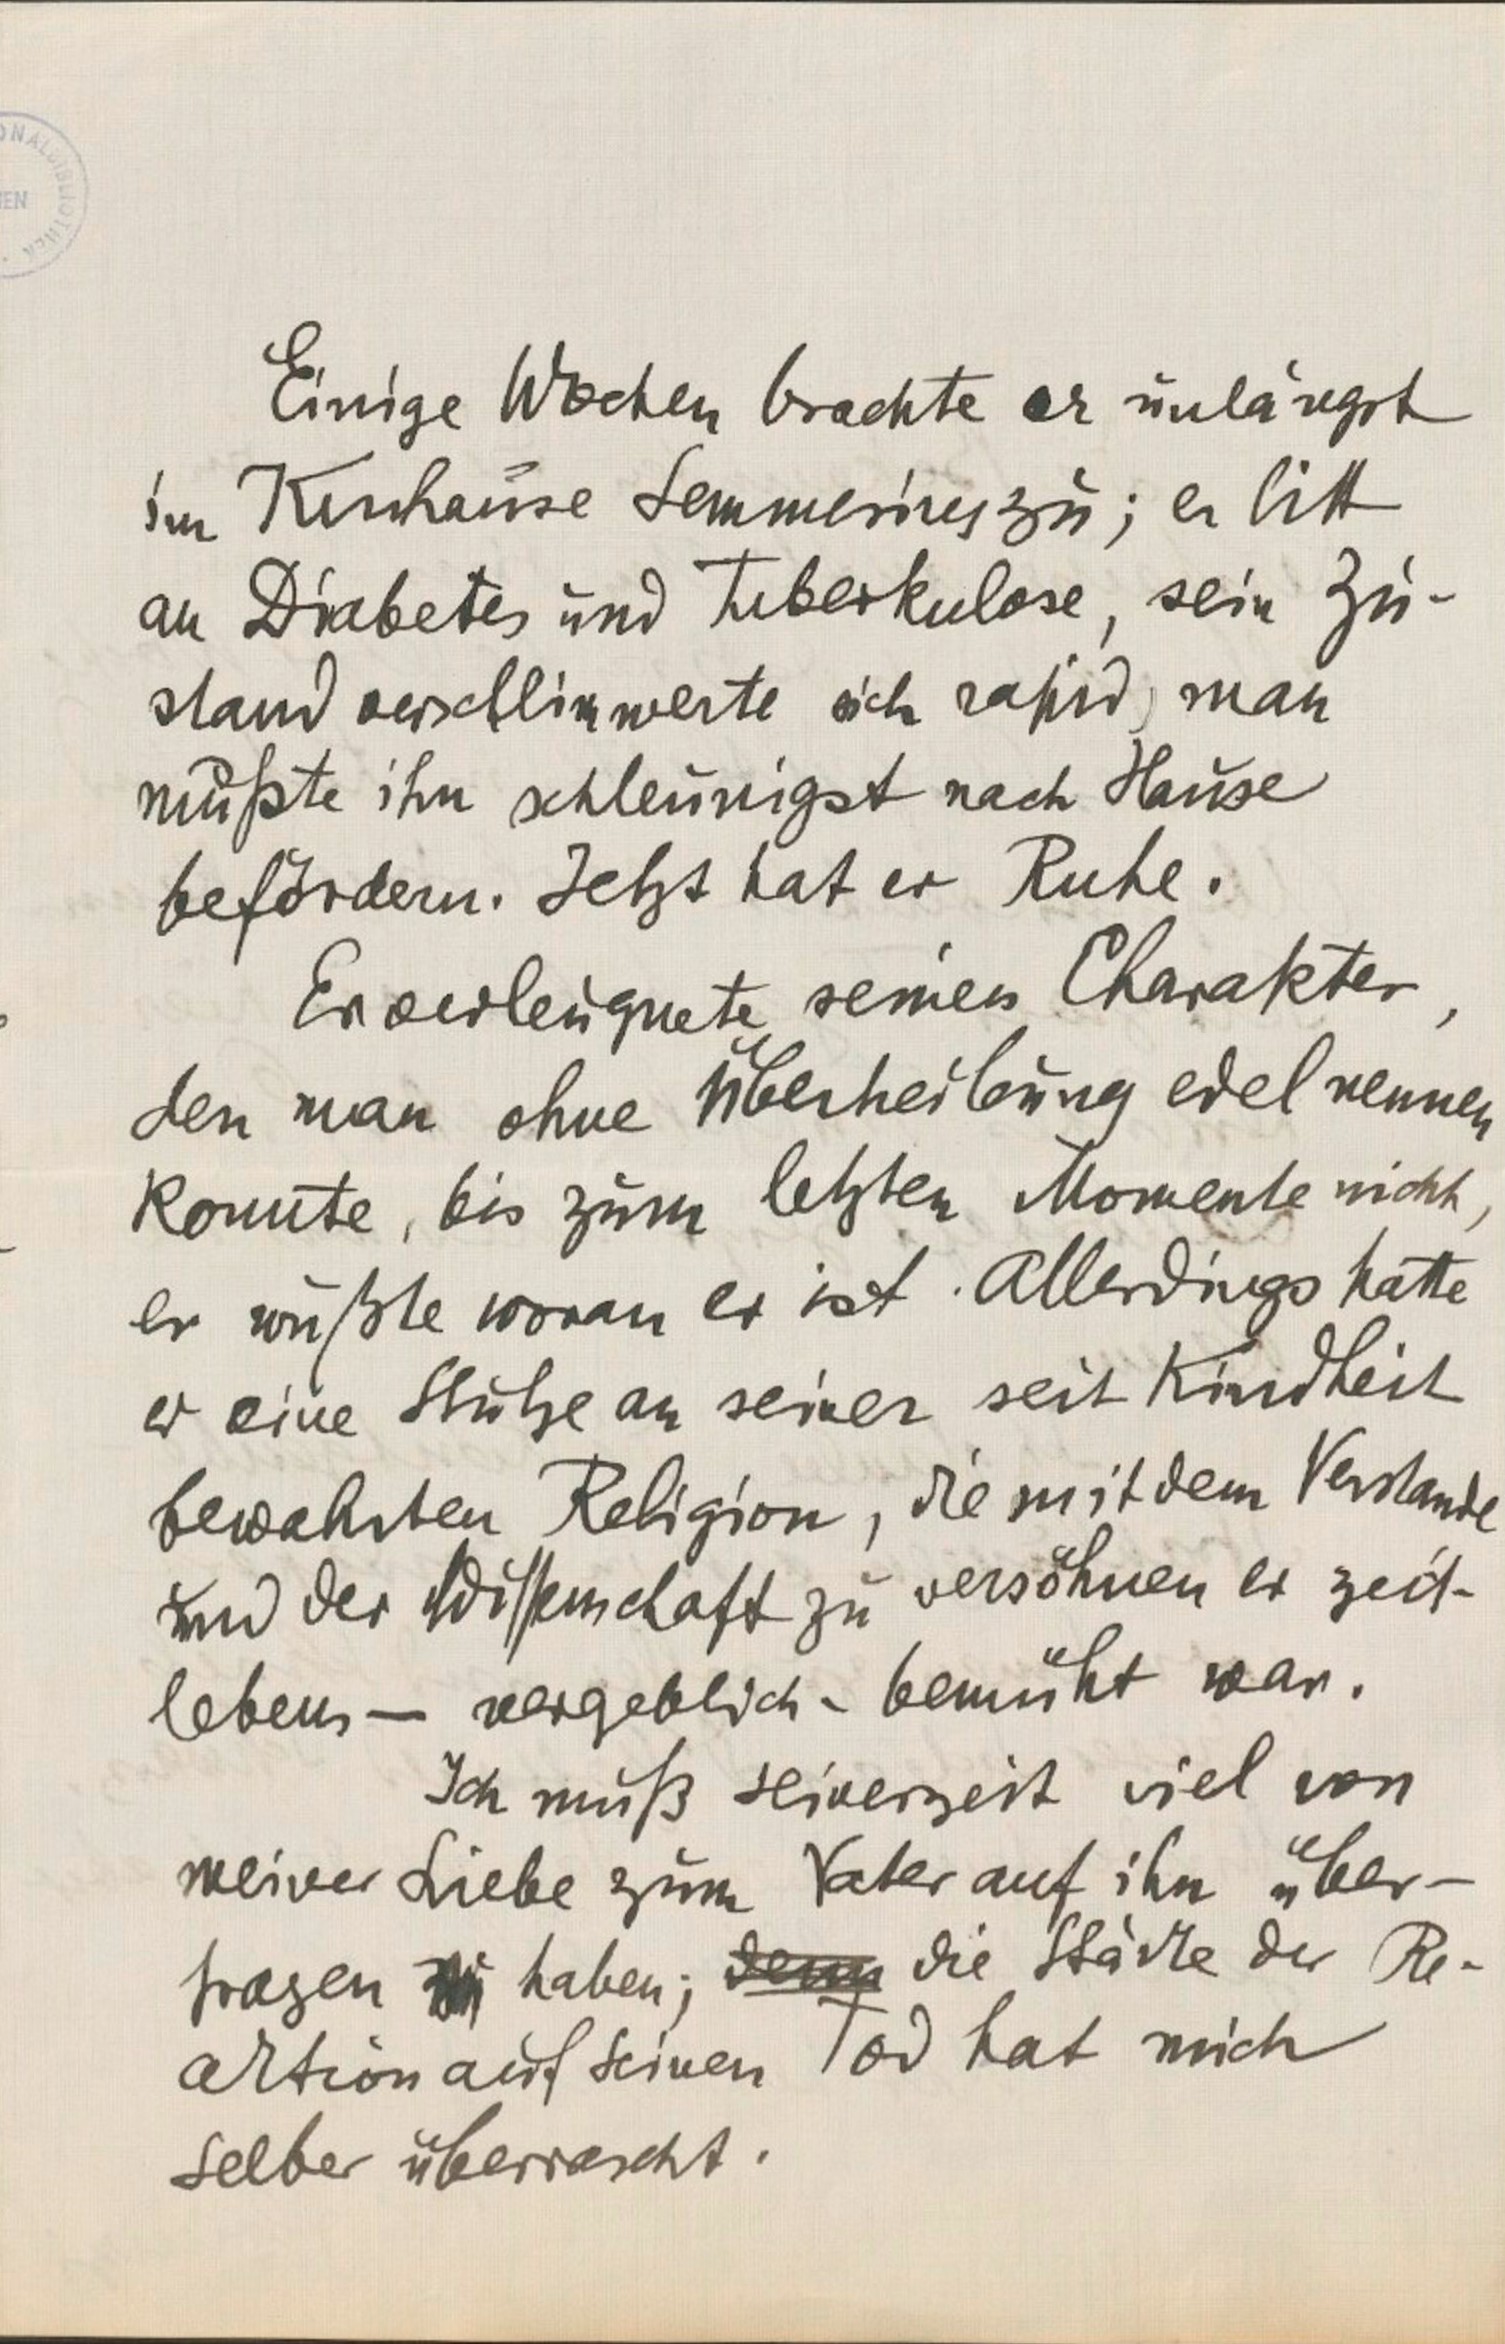 ONALBIBLIOTHEK
IEN
Einige Wochen brachte er unlängst
im Kurhause Semmering zu; er litt
an Diabetes und Tuberkulose, sein Zu-
stand verschlimmerte sich rapid, man
mußte ihn schleunigst nach Hause
befördern. Jetzt hat er Ruhe.
Er verleugnete seinen Charakter,
den man ohne Übertreibung edel nennen
konnte, bis zum letzten Momente nicht,
er wußte woran er ist. Allerdings hatte
er eine Stütze an seiner seit Kindheit
bewahrten Religion, die mit dem Verstande
und der Wissenschaft zu versöhnen er zeit-
lebens – vergeblich – bemüht war.
Ich muß seinerzeit viel von
meiner Liebe zum Vater auf ihn über-
tragen haben; denn die Stärke der Re-
aktion auf seinen Tod hat mich
selber überrascht.